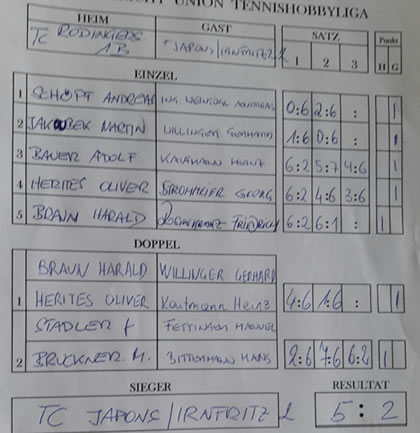 UNION TENNISHOBBYLIGA
HEIM GAST SATZ Punkt
TC RÖDINGERS 1B JAPONS/IRNFRITZ 2 1 2 3 H G
EINZEL
1 SCHÖPF ANDREAS ING. 0:6 2:6 : 1
2 JAKUBEK MARTIN WILLINGER GERHARD 1:6 0:6 : 1
3 BAUER ADOLF KAUFMANN HEINZ 6:2 5:7 4:6 1
4 HERITES OLIVER STROHMEIER GEORG 6:2 4:6 3:6 1
5 BRAUN HARALD FRIEDRICH 6:2 6:1 : 1
DOPPEL
BRAUN HARALD WILLINGER GERHARD
1 HERITES OLIVER Kaufmann Heinz 4:6 1:6 : 1
STADLER
2 BRUCKNER M. BITTERMANN HANS 2:6 7:6 6:2 1
SIEGER RESULTAT
TC JAPONS/IRNFRITZ 2 5:2